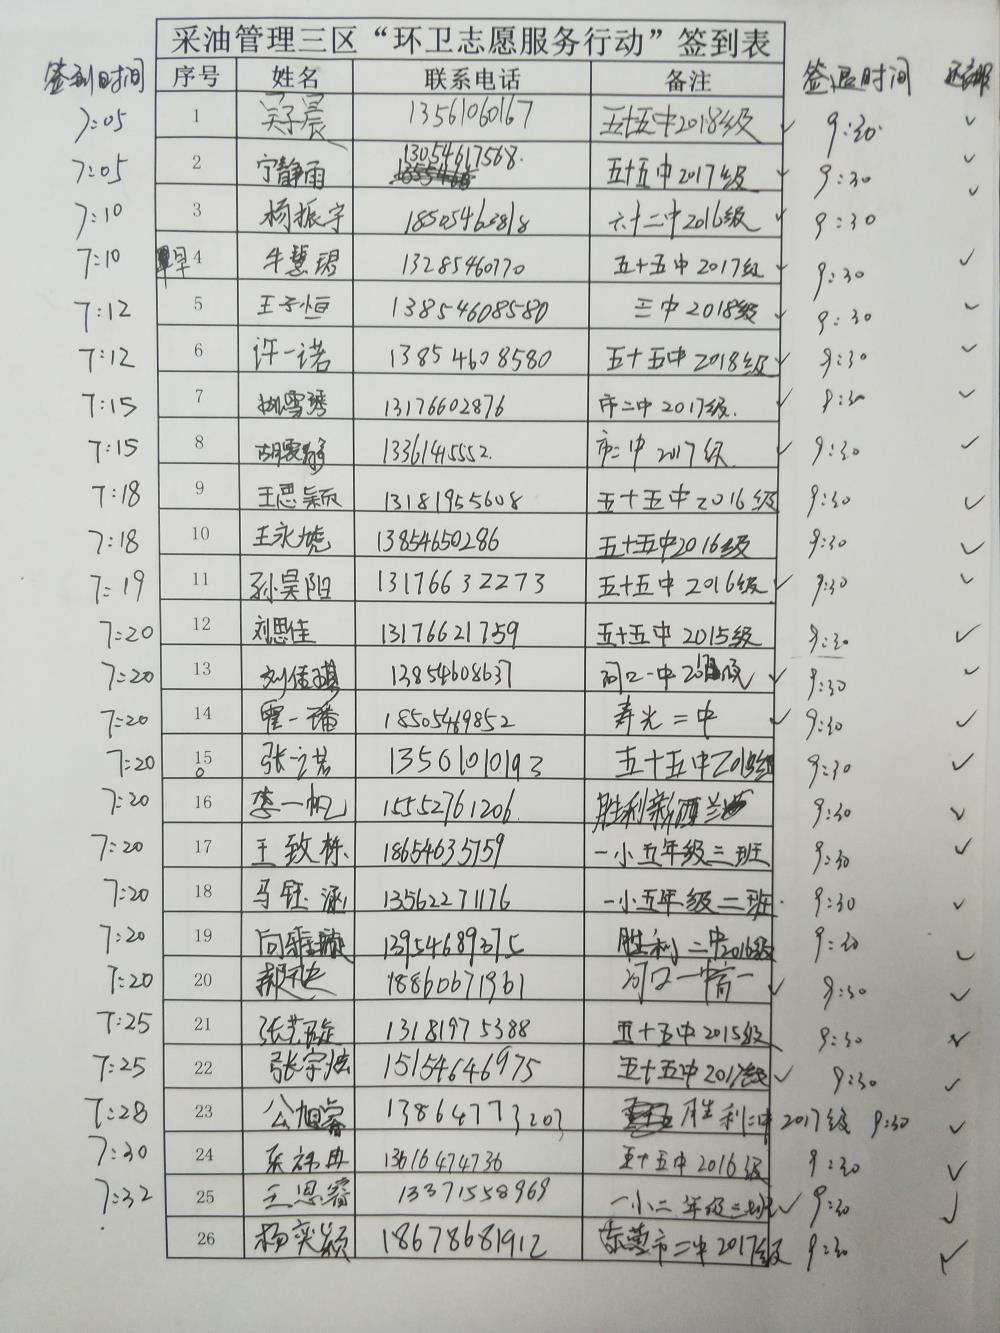 采油管理三区“环卫志愿服务行动”签到表
签到时间 序号 姓名 联系电话 备注 签退时间
7:05 1 吴子晨 13561060167 五十五中2018级 ✓ 9:30 ✓
7:05 2 宁静雨 13054617568 五十五中2017级 ✓ 9:30 ✓
7:10 3 杨振宇 18505463818 六十二中2016级 ✓ 9:30 ✓
7:10 4 牛慧珺 13285460770 五十五中2017级 ✓ 9:30 ✓
7:12 5 王子恒 13854608580 三中2018级 ✓ 9:30 ✓
7:12 6 许一诺 13854608580 五十五中2018级 ✓ 9:30 ✓
7:15 7 13176602876 市二中2017级. ✓ 9:30 ✓
7:15 8 13361415552. 市二中2017级. ✓ 9:30 ✓
7:18 9 王思颖 13181955608 五十五中2016级 9:30 ✓
7:18 10 王永虓 13854650286 五十五中2016级 9:30 ✓
7:19 11 孙昊阳 13176632273 五十五中2016级 ✓ 9:30 ✓
7:20 12 刘思佳 13176621759 五十五中2015级 9:30 ✓
7:20 13 刘佳琪 13854608637 河口一中 ✓ 9:30 ✓
7:20 14 霍一璠 18505469852 寿光二中 ✓ 9:30 ✓
7:20 15 张一诺 13561010193 五十五中2015级 9:30 ✓
7:20 16 李一帆 15552761206. 胜利新西兰 9:30 ✓
7:20 17 王致栋 18654635759 一小五年级三班 9:30 ✓
7:20 18 马钰涵 13562271176 一小五年级二班. 9:30 ✓
7:20 19 13954689375 胜利二中2016级 9:30 ✓
7:20 20 18860671961 河口一中高一 ✓ 9:30 ✓
7:25 21 张芸璇 13181975388 五十五中2015级 9:30 ✓
7:25 22 张宇炫 15154646975 五十五中2017级 ✓ 9:30 ✓
7:28 23 公旭睿 13864773203 胜利二中2017级 9:30 ✓
7:30 24 13616474736 五十五中2016级 9:30 ✓
7:32 25 王恩睿 13371558969 一小二年级二班 ✓ 9:30 ✓
26 杨奕颖 18678681912 东营市二中2017级 9:30 ✓